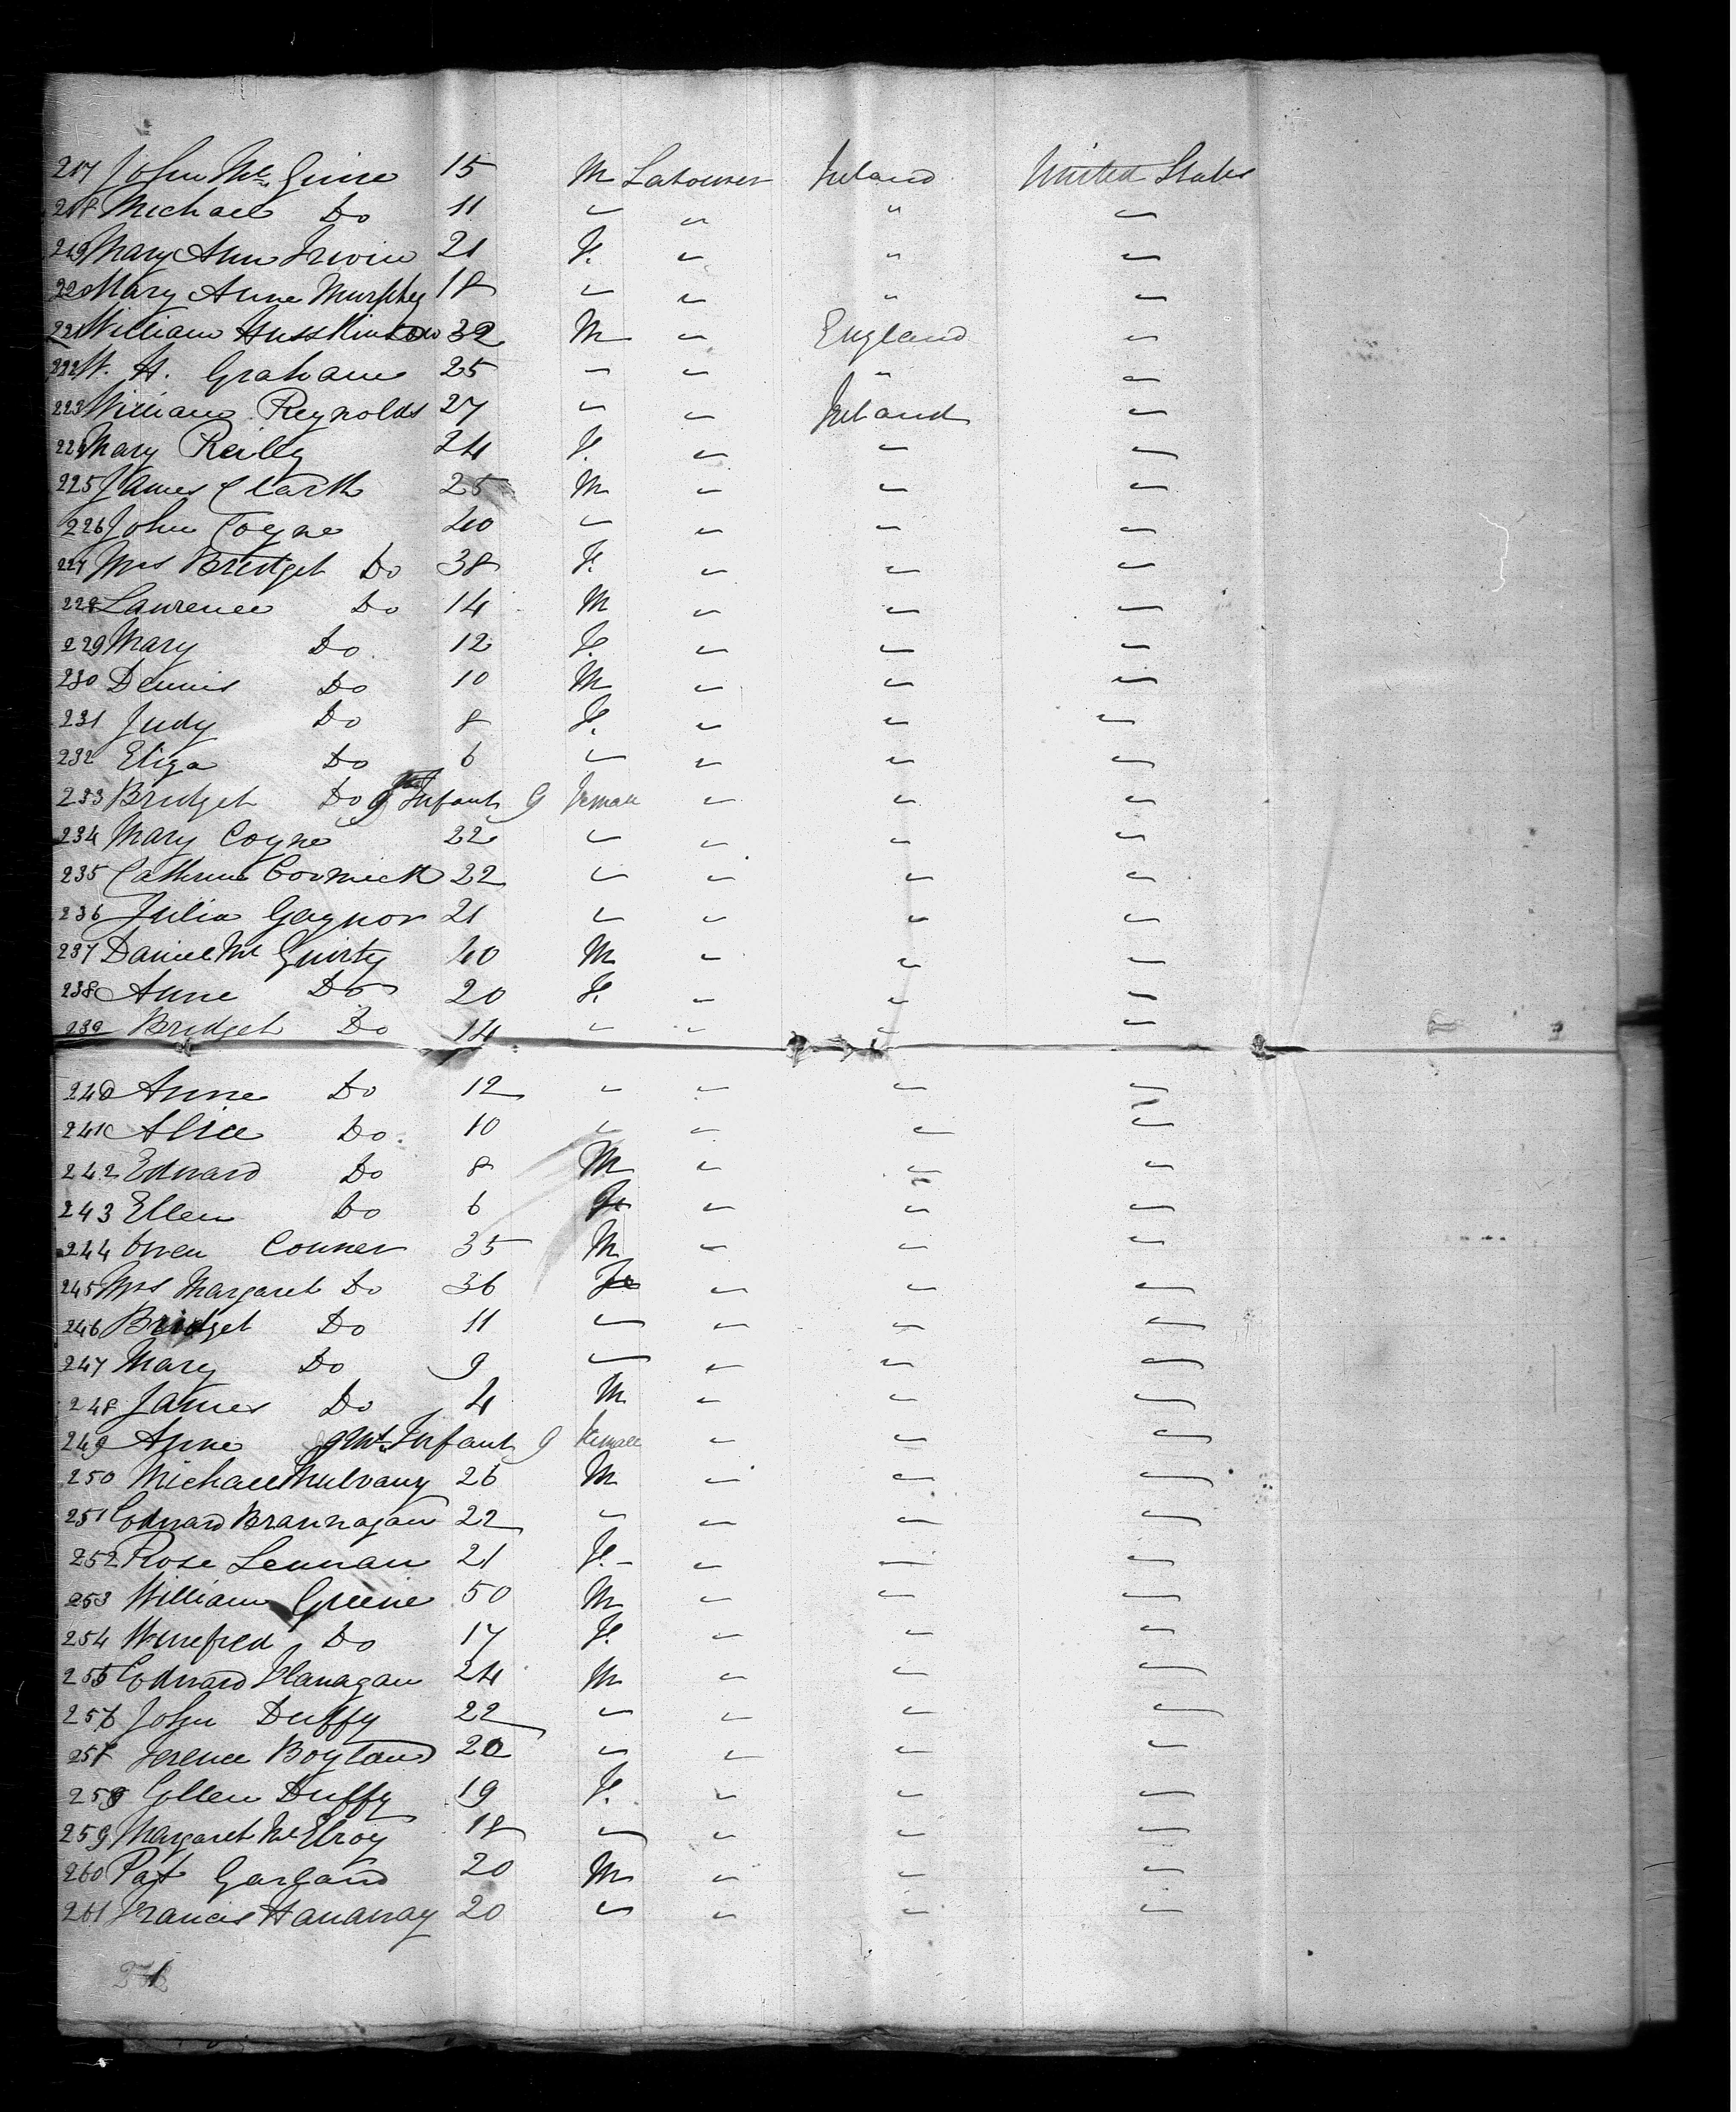 217 John McGuire 15 M Labourer Ireland United States
218 Michael Do 11 " " " "
219 Mary Ann Irwin 21 F. " " "
220 Mary Anne Murphy 18 " " " "
221 William Husskinson 32 M " England "
222 W. H. Graham 25 " " " "
223 William Reynolds 27 " " Ireland "
224 Mary Reilly 24 F. " " "
225 James Clark 25 M " " "
226 John Coyne 40 " " " "
227 Mrs Bridget Do 38 F. " " "
228 Lawrence Do 14 M " " "
229 Mary Do 12 F. " " "
230 Dennis Do 10 M " " "
231 Judy Do 8 F. " " "
232 Eliza Do 6 " " " "
233 Bridget Do 9 Infant 9 Female " " "
234 Mary Coyne 22 " " " "
235 Catherine Cormick 22 " " " "
236 Julia Gaynor 21 " " " "
237 Daniel Mc Guirty 40 M " " "
238 Anne Do 20 F. " " "
239 Bridget Do 14 " " " "
240 Anne Do 12 " " " "
241 Alice Do. 10 " " " "
242 Edward Do 8 M " " "
243 Ellen Do 6 Fe " " "
244 Owen Conner 35 M " " "
245 Mrs Margaret Do 36 Fe " " "
246 Bridget Do 11 " " " "
247 Mary Do 9 " " " "
248 James Do 4 M " " "
249 Anne 9 Mt. Infant 9 Female " " "
250 Michael Mulvany 26 M " " "
251 Edward Brannagan 22 " " " "
252 Rose Lennan 21 F. " " "
253 William Greene 50 M " " "
254 Winefred Do 17 F. " " "
255 Edward Flanagan 24 M " " "
256 John Duffy 22 " " " "
257 Terence Boyland 20 " " " "
258 Ellen Duffy 19 F. " " "
259 Margaret McElroy 18 " " " "
260 Pat Gargand 20 M " " "
261 Francis Hanaway 20 " " " "